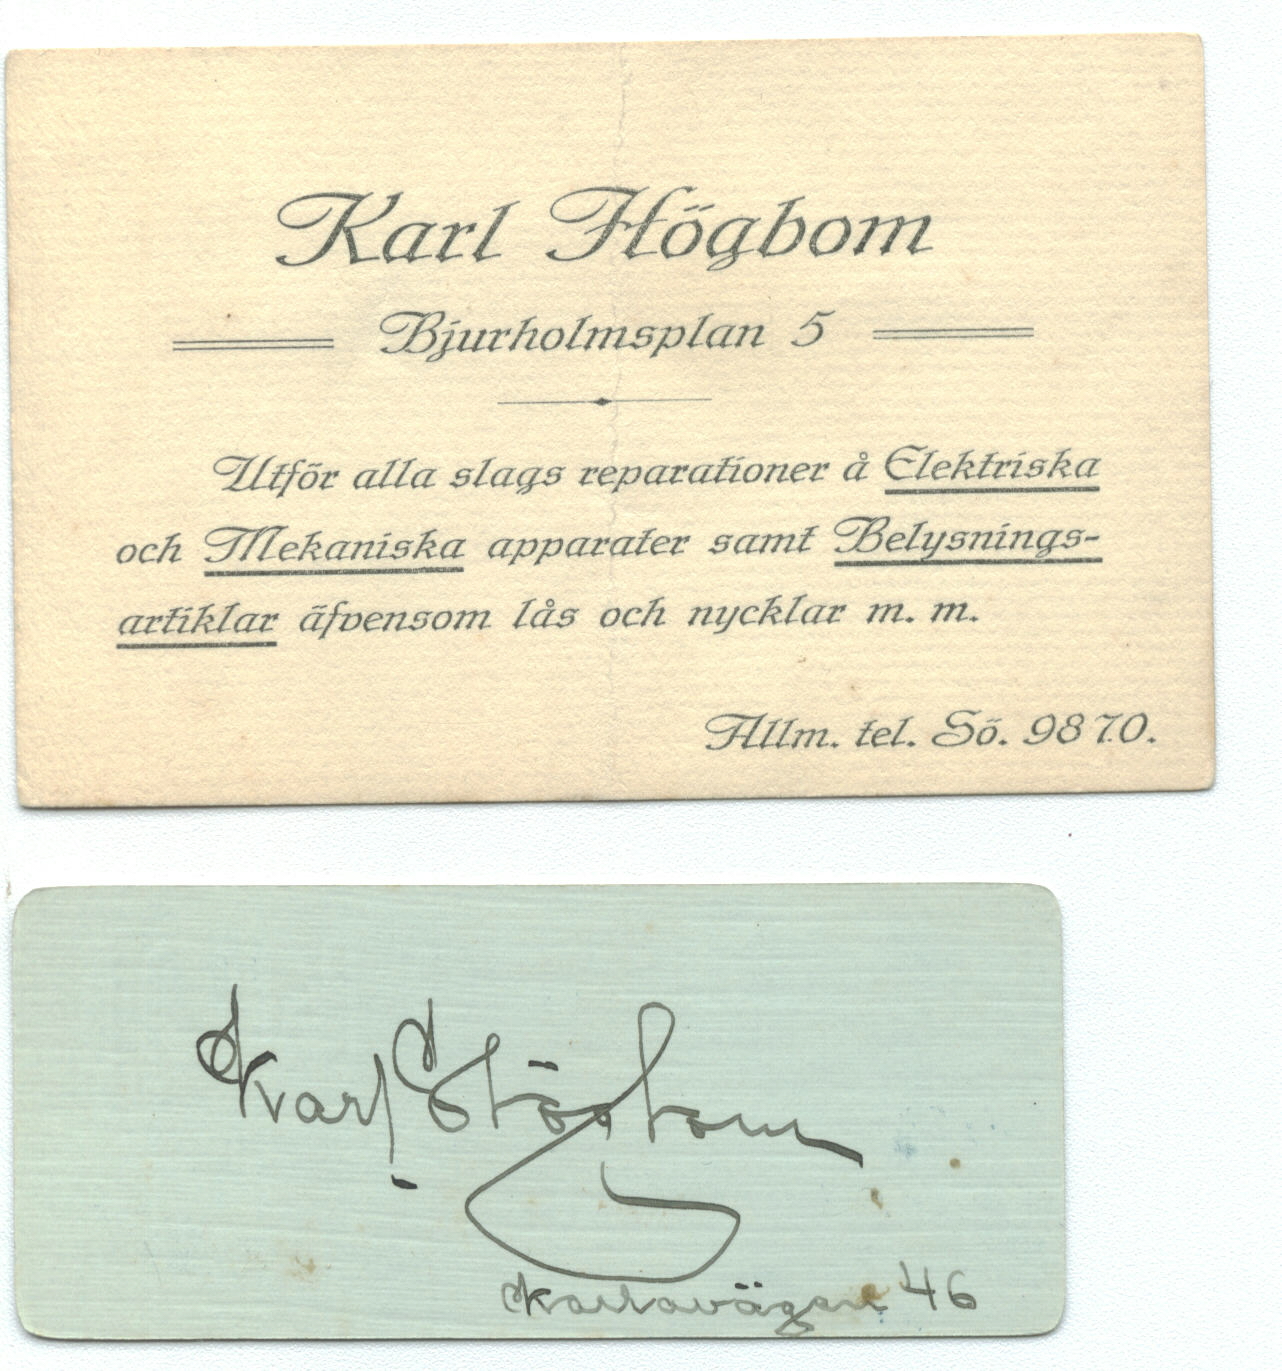 Karl Högbom
Bjurholmsplan 5
Utför alla slags reparationer å Elektriska
och Mekaniska apparater samt Belysnings-
artiklar äfvensom lås och nycklar m. m.
Allm. tel. Sö. 9870.
Karl Högbom
Karlavägen 46